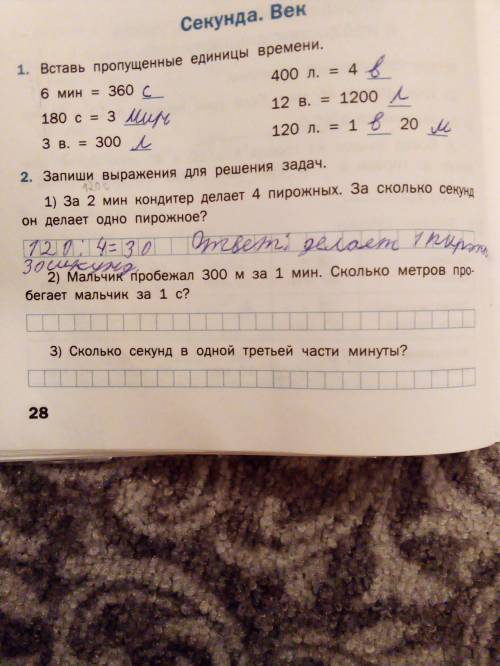 Секунда. Век
1. Вставь пропущенные единицы времени.
6 мин = 360 с
180 с = 3 мин
3 в. = 300 л
400 л. = 4 в
12 в. = 1200 л
120 л. = 1 в 20 м
2. Запиши выражения для решения задач.
120с
1) За 2 мин кондитер делает 4 пирожных. За сколько секунд
он делает одно пирожное?
120:4=30 Ответ: делает 1 пирожн
30 секунд.
2) Мальчик пробежал 300 м за 1 мин. Сколько метров про-
бегает мальчик за 1 с?
3) Сколько секунд в одной третьей части минуты?
28